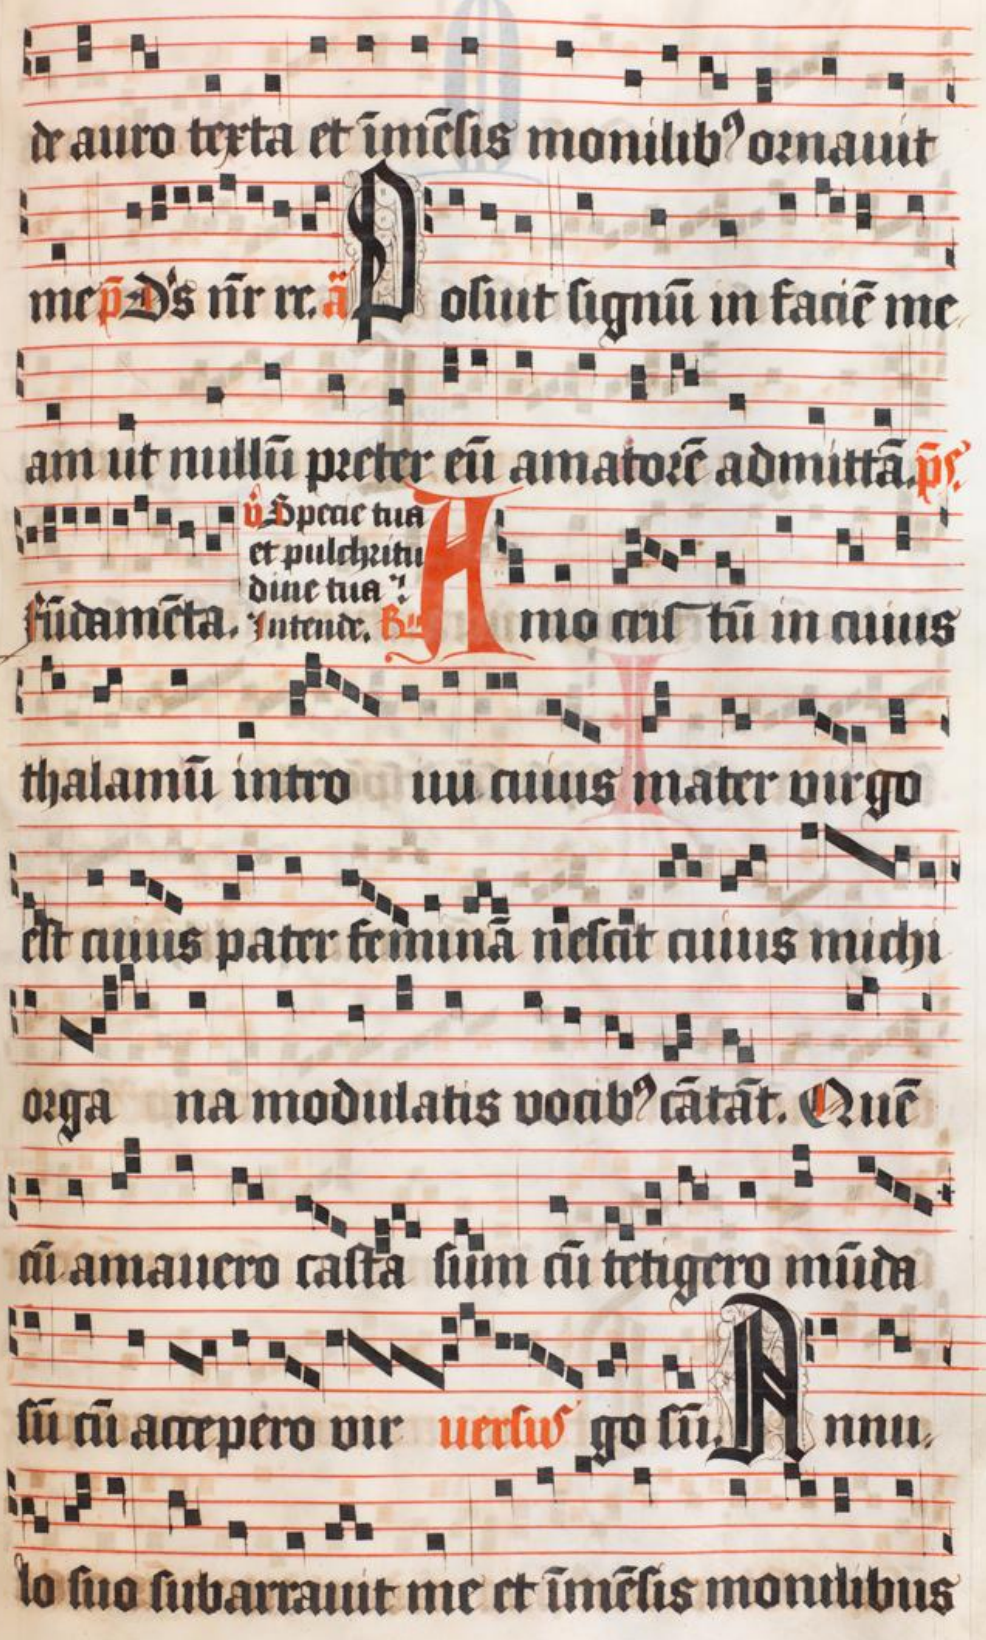 de auro texta et īmēsis monilibꝰ ornauit
me p̄ Dn̄s nr̄ re. ā Posuit signū in faciē me
am ut nullū preter eū amatorē admittā. ps̄.
fūdamēta. v̄ Specie tua
et pulchritu
dine tua
Intende. R Amo cris tū in cuius
thalamū intro iui cuius mater virgo
est cuius pater feminā nescit cuius michi
orga na modulatis vocibꝰ cātāt. Quē
cū amauero casta sum cū tetigero mūda
sū cū accepero vir uersus go sū. Annu
lo suo subarrauit me et īmēsis monilibus